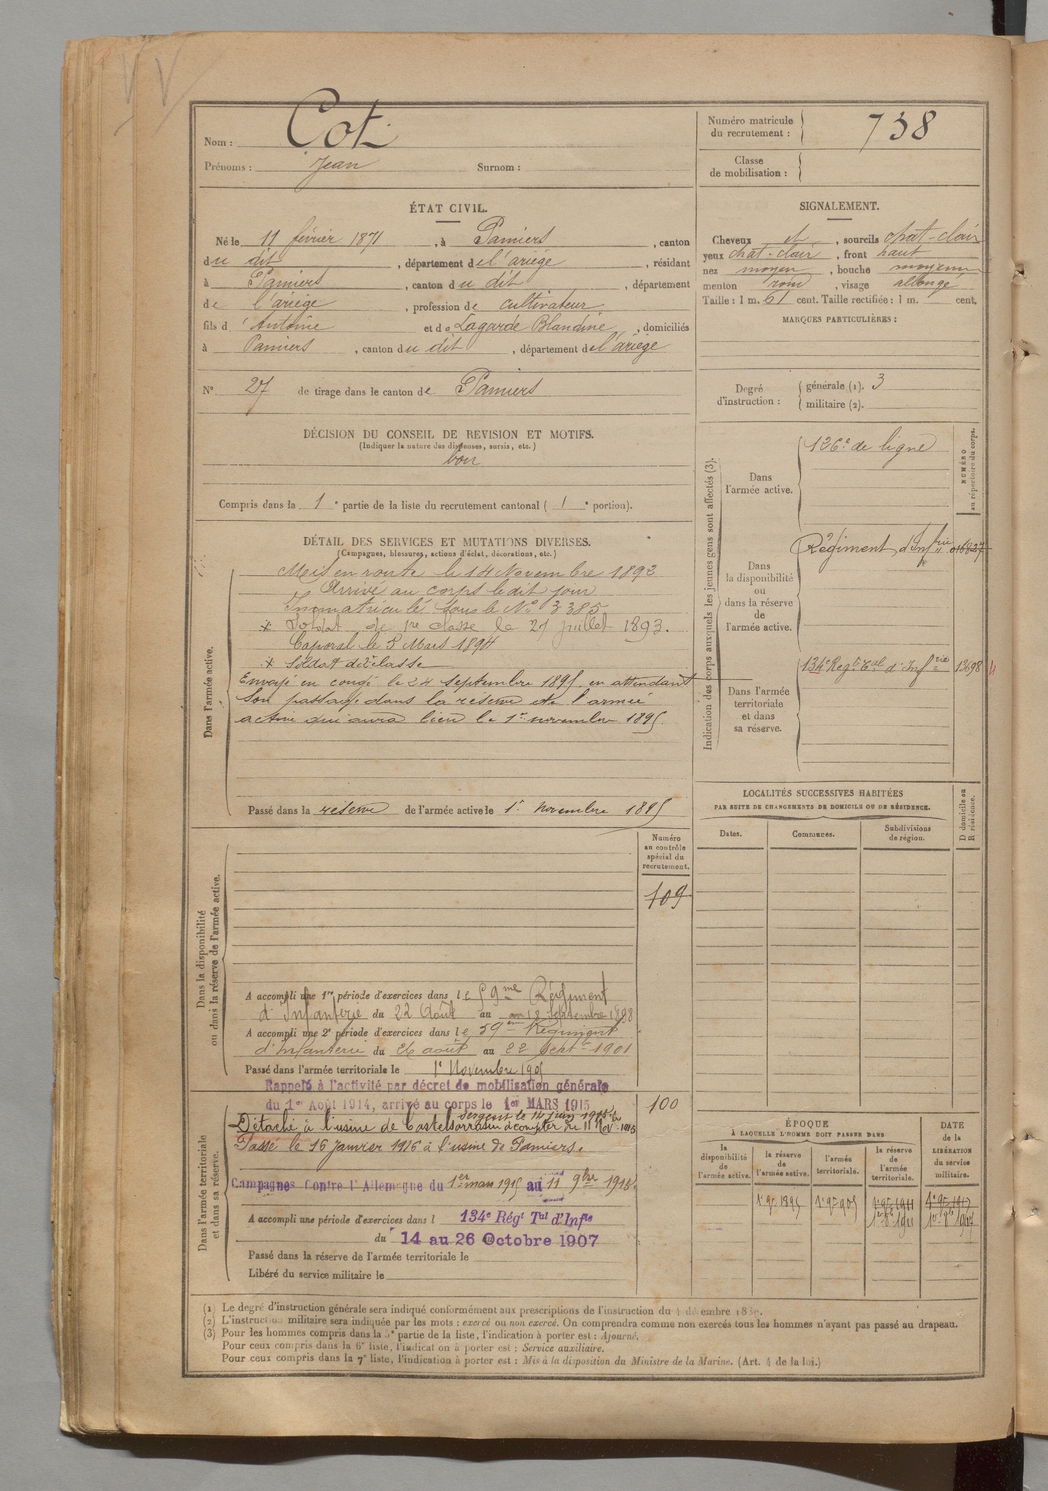 Nom : Cot
Prénoms : Jean Surnom :
Numéro matricule du recrutement : 738
Classe de mobilisation :
ÉTAT CIVIL.
Né le 11 février 1871, à Pamiers, canton
du dit, département de l'ariège, résidant
à Pamiers, canton du dit, département
de l'ariège, profession de cultivateur
fils d'Antoine et de Lagarde Blandine, domiciliés
à Pamiers, canton du dit, département de l'ariège
N° 27 de tirage dans le canton de Pamiers
SIGNALEMENT.
Cheveux et, sourcils chat-clair
yeux chat-clair, front haut
nez moyen, bouche moyenne
menton rond, visage allongé
Taille : 1 m. 61 cent. Taille rectifiée : 1 m. cent.
MARQUES PARTICULIÈRES :
Degré d'instruction : générale (1). 3
militaire (2).
DÉCISION DU CONSEIL DE REVISION ET MOTIFS.
(Indiquer la nature des dispenses, sursis, etc.)
bon
Compris dans la 1e partie de la liste du recrutement cantonal (1e portion).
DÉTAIL DES SERVICES ET MUTATIONS DIVERSES.
(Campagnes, blessures, actions d'éclat, décorations, etc.)
Dans l'armée active.
Mis en route le 14 Novembre 1892
Arrivé au corps le dit jour
Immatriculé sous le N° 3385
* Soldat de 1re classe le 21 juillet 1893.
Caporal le 5 Mars 1894
* Soldat de 2e classe
Envoyé en congé le 24 septembre 1895 en attendant
son passage dans la réserve de l'armée
active qui aura lieu le 1er novembre 1895.
Passé dans la réserve de l'armée active le 1r Novembre 1895
Indication des corps auxquels les jeunes gens sont affectés (3).
NUMÉRO au répertoire du corps.
Dans l'armée active.
126e de ligne
Dans la disponibilité ou dans la réserve de l'armée active.
Régiment d'Infrie
Dans l'armée territoriale et dans sa réserve.
134e Regt Tal d'Infrie 13698
LOCALITÉS SUCCESSIVES HABITÉES
PAR SUITE DE CHANGEMENTS DE DOMICILE OU DE RÉSIDENCE.
Dates. Communes. Subdivisions de région. D domicile ou R résidence.
Dans la disponibilité ou dans la réserve de l'armée active.
Numéro au contrôle spécial du recrutement.
109
A accompli une 1re période d'exercices dans le 59me Régiment
d'Infanterie du 22 Août au 18 Septembre 1898
A accompli une 2e période d'exercices dans le 59em Régiment
d'Infanterie du 26 août au 22 Septbre 1901
Passé dans l'armée territoriale le 1r Novembre 1905
Dans l'armée territoriale et dans sa réserve.
100
Rappelé à l'activité par décret de mobilisation générale
du 1er Août 1914, arrivé au corps le 1er MARS 1915
Sergent le 14 juin 1915
Détaché à l'usine de Castelsarrasin à compter du 11 Nov. 1915
Passé le 16 janvier 1916 à l'usine de Pamiers.
Campagnes Contre l'Allemagne du 1er mars 1915 au 11 9bre 1915
A accompli une période d'exercices dans l 134e Régt Tal d'Infie
du 14 au 26 Octobre 1907
Passé dans la réserve de l'armée territoriale le
Libéré du service militaire le
ÉPOQUE
À LAQUELLE L'HOMME DOIT PASSER DANS
la disponibilité de l'armée active. la réserve de l'armée active. l'armée territoriale. la réserve de l'armée territoriale.
DATE de la LIBÉRATION du service militaire.
(1) Le degré d'instruction générale sera indiqué conformément aux prescriptions de l'instruction du décembre
(2) L'instruction militaire sera indiquée par les mots : exercé ou non exercé. On comprendra comme non exercés tous les hommes n'ayant pas passé au drapeau.
(3) Pour les hommes compris dans la 5e partie de la liste, l'indication à porter est : Ajourné.
Pour ceux compris dans la 6e liste, l'indication à porter est : Service auxiliaire.
Pour ceux compris dans la 7e liste, l'indication à porter est : Mis à la disposition du Ministre de la Marine. (Art. 4 de la loi.)